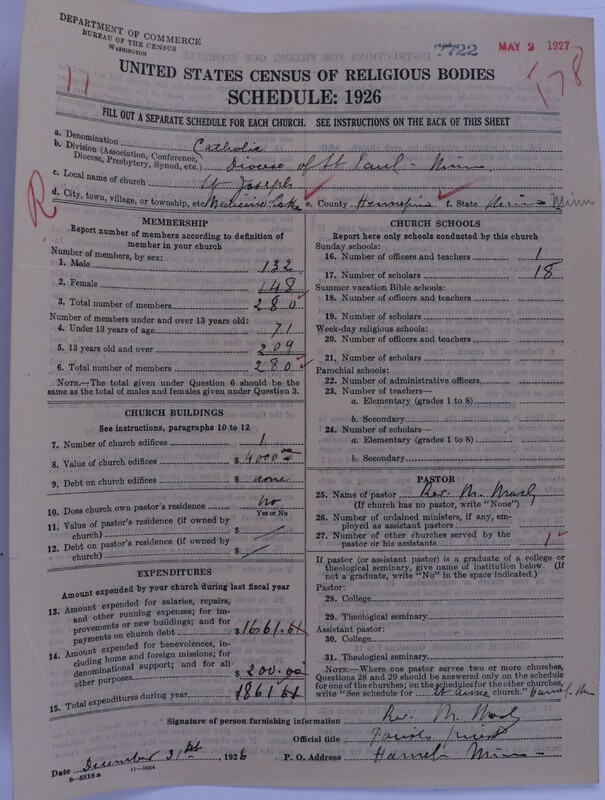 DEPARTMENT OF COMMERCE
BUREAU OF THE CENSUS
WASHINGTON
MAY 2 1927
178
11
UNITED STATES CENSUS OF RELIGIOUS BODIES
SCHEDULE: 1926
FILL OUT A SEPARATE SCHEDULE FOR EACH CHURCH. SEE INSTRUCTIONS ON THE BACK OF THIS SHEET
a. Denomination Catholic
b. Division (Association, Conference, Diocese, Presbytery, Synod, etc.) Diocese of St Paul - Minn.
c. Local name of church St Joseph
d. City, town, village, or township, etc. Medicine Lake e. County Hennepin f. State Minn Minn
R
MEMBERSHIP
Report number of members according to definition of
member in your church
Number of members, by sex:
1. Male 132
2. Female 148
3. Total number of members 280
Number of members under and over 13 years old:
4. Under 13 years of age 71
5. 13 years old and over 209
6. Total number of members 280
NOTE.—The total given under Question 6 should be
same as the total of males and females given under Question 3.
CHURCH BUILDINGS
See instructions, paragraphs 10 to 12
7. Number of church edifices 1
8. Value of church edifices $ 4000
9. Debt on church edifices $ none
10. Does church own pastor's residence No
Yes or No
11. Value of pastor's residence (if owned by
church) $
12. Debt on pastor's residence (if owned by
church) $
EXPENDITURES
Amount expended by your church during last fiscal year
13. Amount expended for salaries, repairs,
and other running expenses; for im-
provements or new buildings; and for
payments on church debt $ 1661.61
14. Amount expended for benevolences, in-
cluding home and foreign missions; for
denominational support; and for all
other purposes $ 200.00
15. Total expenditures during year 1861 61
CHURCH SCHOOLS
Report here only schools conducted by this church
Sunday schools:
16. Number of officers and teachers 1
17. Number of scholars 18
Summer vacation Bible schools:
18. Number of officers and teachers
19. Number of scholars
Week-day religious schools:
20. Number of officers and teachers
21. Number of scholars
Parochial schools:
22. Number of administrative officers
23. Number of teachers—
a. Elementary (grades 1 to 8)
b. Secondary
24. Number of scholars—
a. Elementary (grades 1 to 8)
b. Secondary
PASTOR
25. Name of pastor Rev. M.
(If church has no pastor, write "None")
26. Number of ordained ministers, if any, em-
ployed as assistant pastors
27. Number of other churches served by the
pastor or his assistants 1
If pastor (or assistant pastor) is a graduate of a college or
theological seminary, give name of institution below. (If
not a graduate, write "No" in the space indicated.)
Pastor:
28. College
29. Theological seminary
Assistant pastor:
30. College
31. Theological seminary
NOTE.—Where one pastor serves two or more churches,
Questions 28 and 29 should be answered only on the schedule
for one of the churches; on the schedules for the other churches,
write "See schedule for St Anne church." Hamel, Min
Signature of person furnishing information Rev. M.
Official title
Date December 31st, 1926 P. O. Address Hamel Minn
8-5518a 11-9664